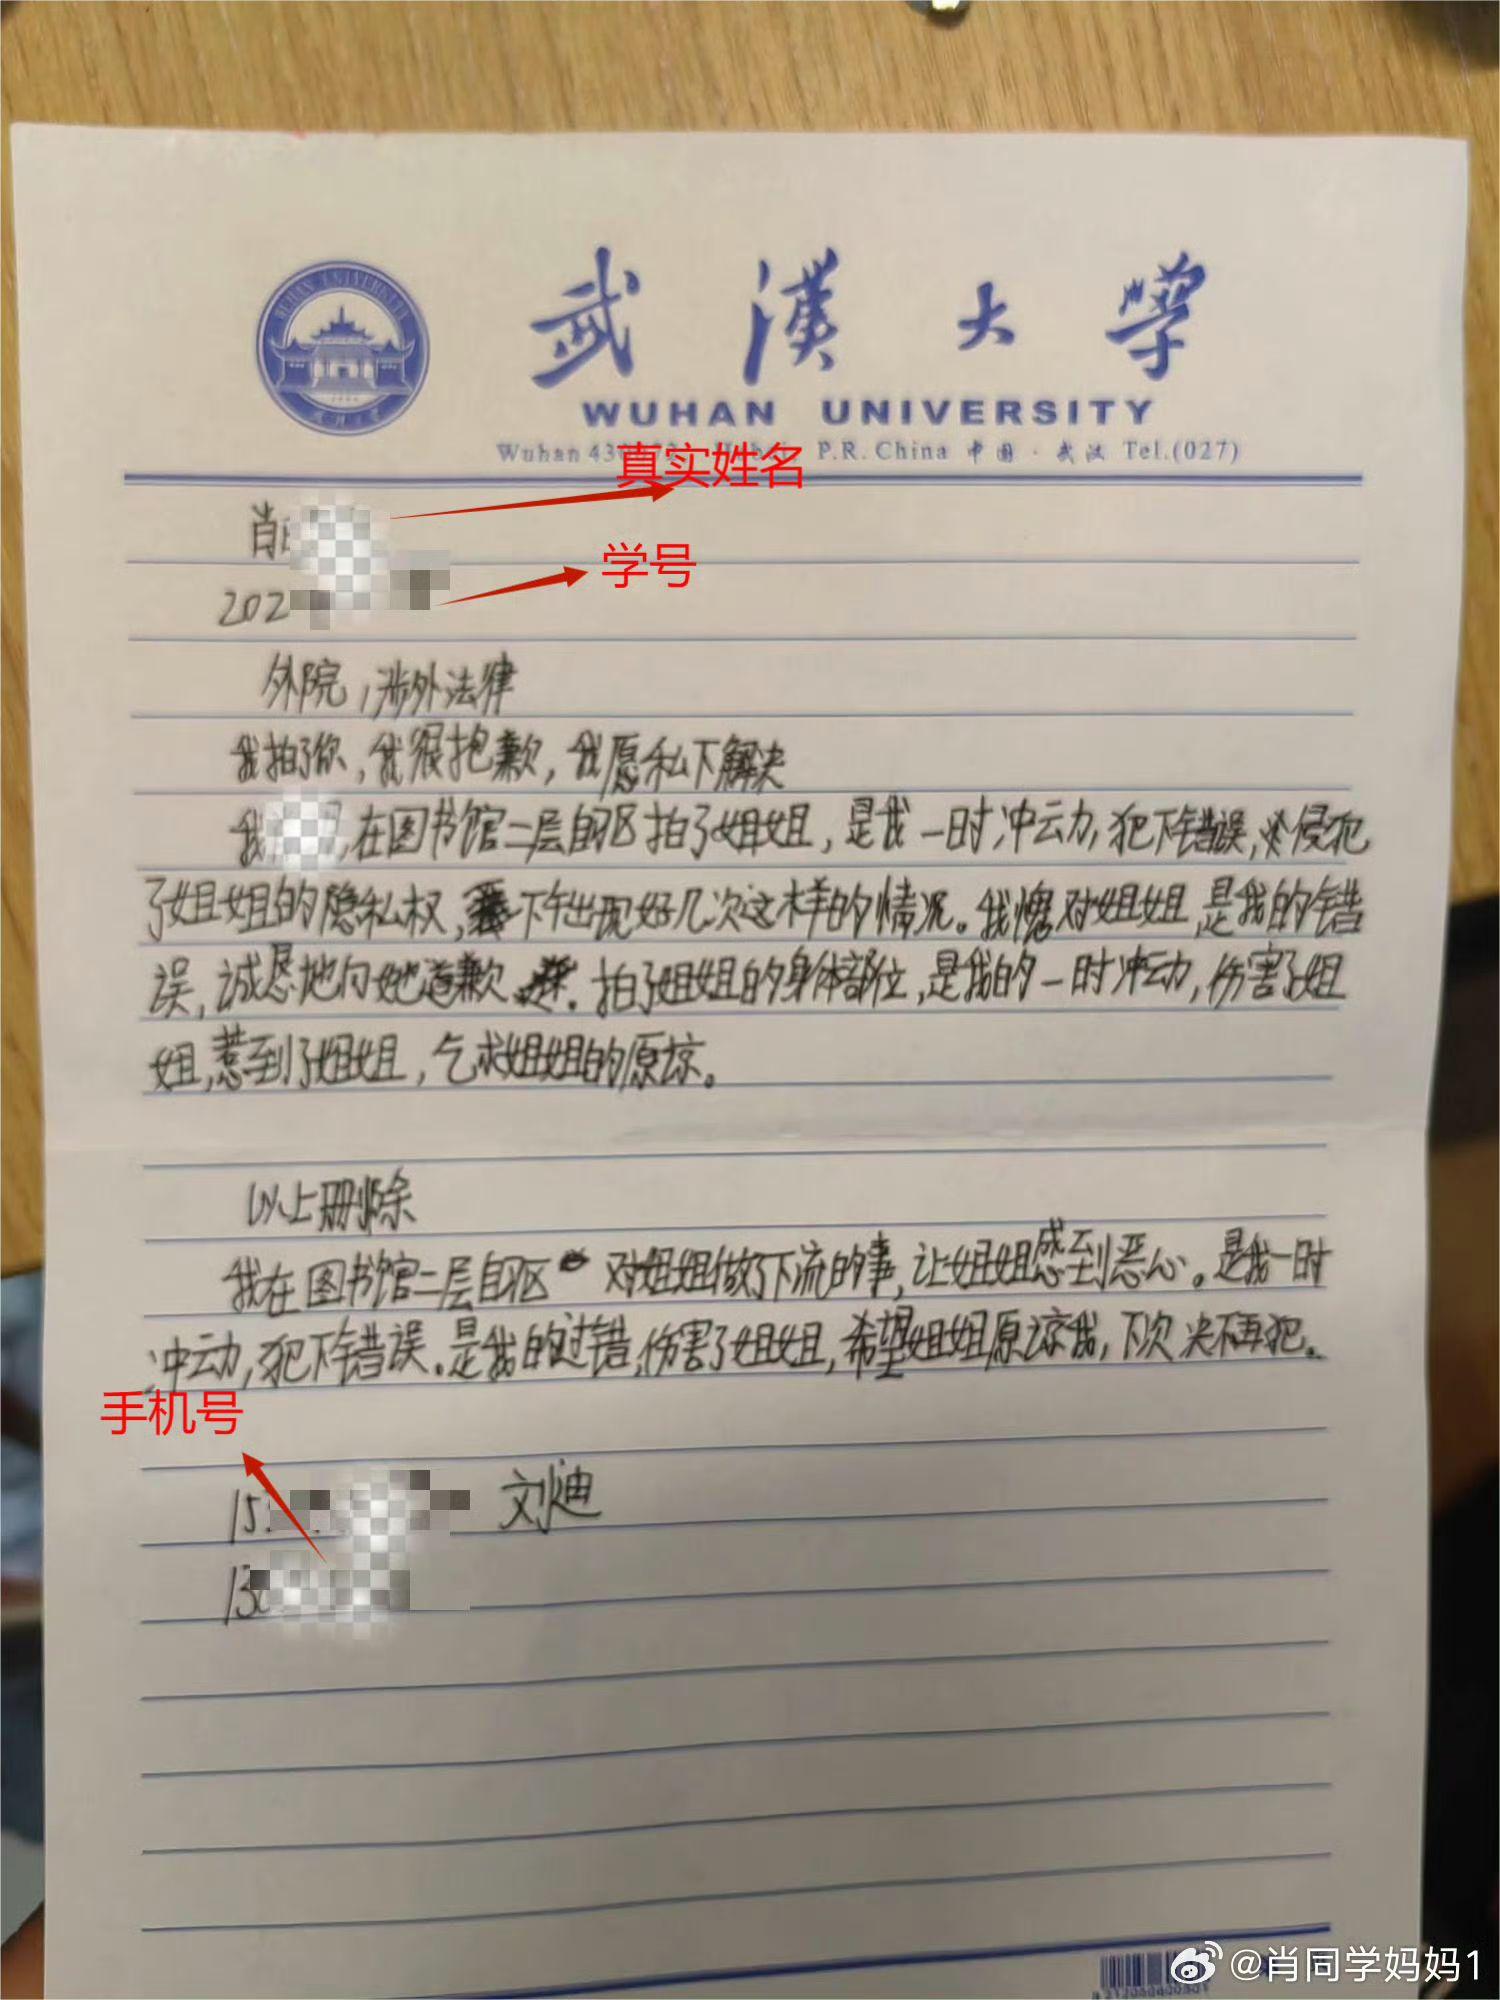 武漢大學
WUHAN UNIVERSITY
Wuhan P.R. China 中国·武汉 Tel.(027)
真实姓名
肖
学号
202
外院，涉外法律
我拍了你，我很抱歉，我愿私下解决
我，在图书馆二层自习区拍了姐姐，是我一时冲动，犯下错误，侵犯
了姐姐的隐私权，下午出现好几次这样的情况。我愧对姐姐，是我的错
误，诚恳地向她道歉。拍了姐姐的身体部位，是我的一时冲动，伤害了姐
姐，惹到了姐姐，乞求姐姐的原谅。
以上删除
我在图书馆二层自习区对姐姐做了下流的事，让姐姐感到恶心。是我一时
冲动，犯下错误。是我的过错，伤害了姐姐，希望姐姐原谅我，下次决不再犯。
手机号
15 刘迪
13
@肖同学妈妈1